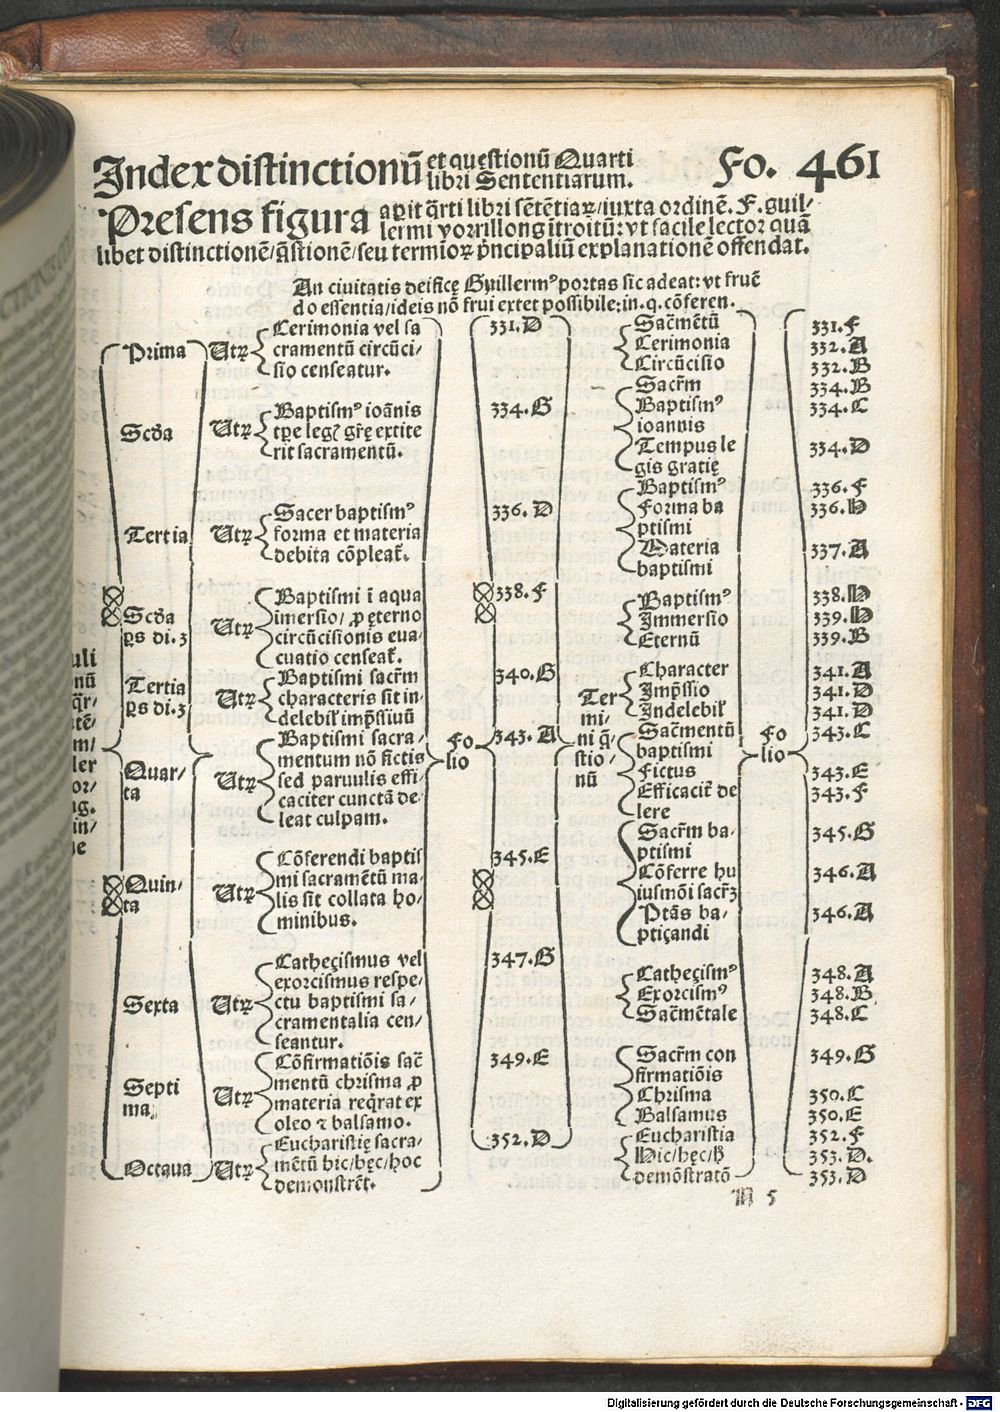 Index distinctionū et questionū Quarti
libri Sententiarum. Fo. 461
Presens figura aꝑit q̄rti libri sētētiaꝝ/iuxta ordinē. F. guil-
lermi vorrillong ītroitū: vt facile lector quā
libet distinctionē/q̄stionē/seu termioꝝ p̄ncipaliū explanationē offendat.
An ciuitatis deificę Guillermꝰ portas sic adeat: vt fruē
do essentia/ideis nō frui extet possibile: in. q. cōferen.
Prima Utꝝ
Cerimonia vel sa
cramentū circūci/
sio censeatur.
331. D
Sac̄mētū 331. F
Cerimonia 332. A
Circūcisio 332. B
Scd̄a Utꝝ
Baptismꝰ ioānis
tꝑe legꝭ gr̄ę extite
rit sacramentū.
334. G
Sacr̄m 334. B
Baptismꝰ 334. C
ioannis
Tempus le 334. D
gis gratię
Tertia Utꝝ
Sacer baptismꝰ
forma et materia
debita cōpleat᷑.
336. D
Baptismꝰ 336. F
Forma ba 336. H
ptismi
Materia 337. A
baptismi
Scd̄a
ꝑs di. 3 Utꝝ
Baptismi ī aqua
imersio/ ꝓ ęterno
circūcisionis eua/
cuatio censeat᷑.
338. F
Baptismꝰ 338. H
Immersio 339. H
Eternū 339. B
Tertia
ꝑs di. 3 Utꝝ
Baptismi sacr̄m
characteris sit in/
delebil᷑ imp̄ssiuū
340. G
Character 341. A
Imp̄ssio 341. D
Indelebil᷑ 341. D
Quar/
ta Utꝝ
Baptismi sacra/
mentum nō fictis
sed paruulis effi/
caciter cunctā de/
leat culpam.
Fo
lio
343. A
Ter
mi/
ni q̄/
stio/
nū
Sac̄mentū 343. C
baptismi
Fictus 343. E
Efficacit᷑ de 343. F
lere
Fo
lio
Quin/
ta Utꝝ
Cōferendi baptis
mi sacramētū ma/
lis sit collata ho/
minibus.
345. E
Sacr̄m ba/ 345. G
ptismi
Cōferre hu 346. A
iusmōi sacr̄ꝫ
Ptās ba/ 346. A
ptiçandi
Sexta Utꝝ
Catheçismus vel
exorcismus respe/
ctu baptismi sa/
cramentalia cen/
seantur.
347. G
Catheçismꝰ 348. A
Exorcismꝰ 348. B
Sac̄mētale 348. C
Septi
ma Utꝝ
Cōfirmatiōis sac̄
mentū chrisma ꝓ
materia reqͥrat ex
oleo ⁊ balsamo.
349. E
Sacr̄m con 349. G
firmatiōis
Chrisma 350. C
Balsamus 350. E
Octaua Utꝝ
Eucharistię sacra/
mētū hic/hęc/hoc
demonstrēt.
352. D
Eucharistia 352. F
Hic/hęc/h̄ 353. D.
demōstratō 353. D
uli
nū
q̄r/
tē/
m/
ler
or/
ng.
in/
ne
M 5
Digitalisierung gefördert durch die Deutsche Forschungsgemeinschaft - DFG